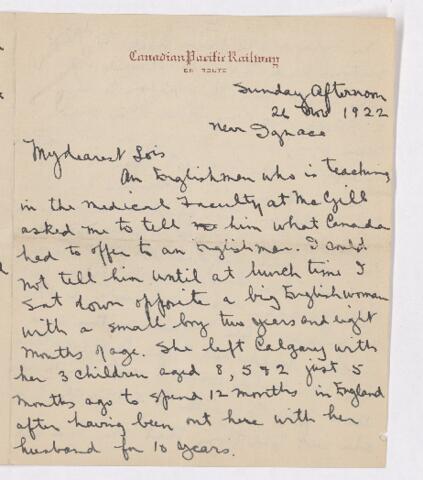 Canadian Pacific Railway
EN ROUTE
Sunday Afternoon
26 Nov 1922
Near Ignace
My dearest Lois
An Englishman who is teaching
in the Medical Faculty at McGill
asked me to tell him what Canada
had to offer to an Englishman. I could
not tell him until at lunch time I
sat down opposite a big Englishwoman
with a small boy two years and eight
months of age. She left Calgary with
her 3 children aged 8, 5 & 2 just 5
months ago to spend 12 months in England
after having been out here with her
husband for 10 years.